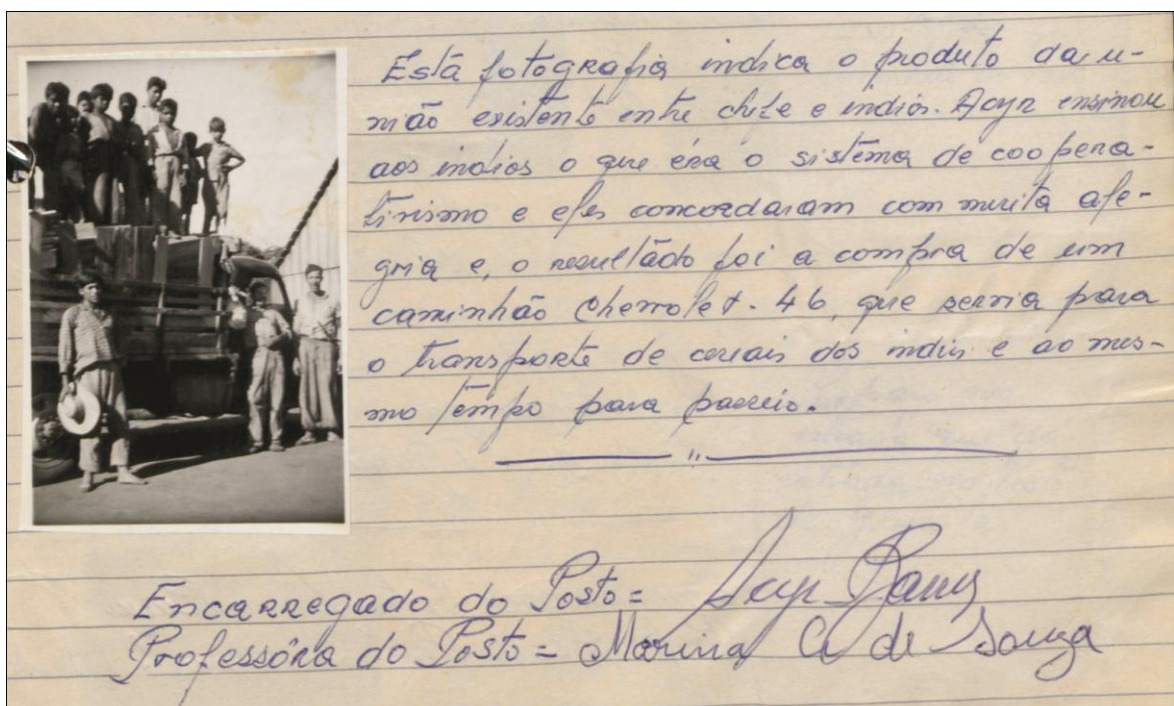 Está fotografia indica o produto da u-
nião existente entre chefe e indios. Acyr ensinou
aos indios o que éra o sistêma de coopera-
tivismo e eles concordaram com muita ale-
gria e, o resultādo foi a compra de um
caminhão Chevrolet-46, que servia para
o transporte de cereais dos indios e ao mes-
mo tempo para passeio.
"
Encarregado do Posto = Acyr
Professôra do Posto = Marina C de Souza